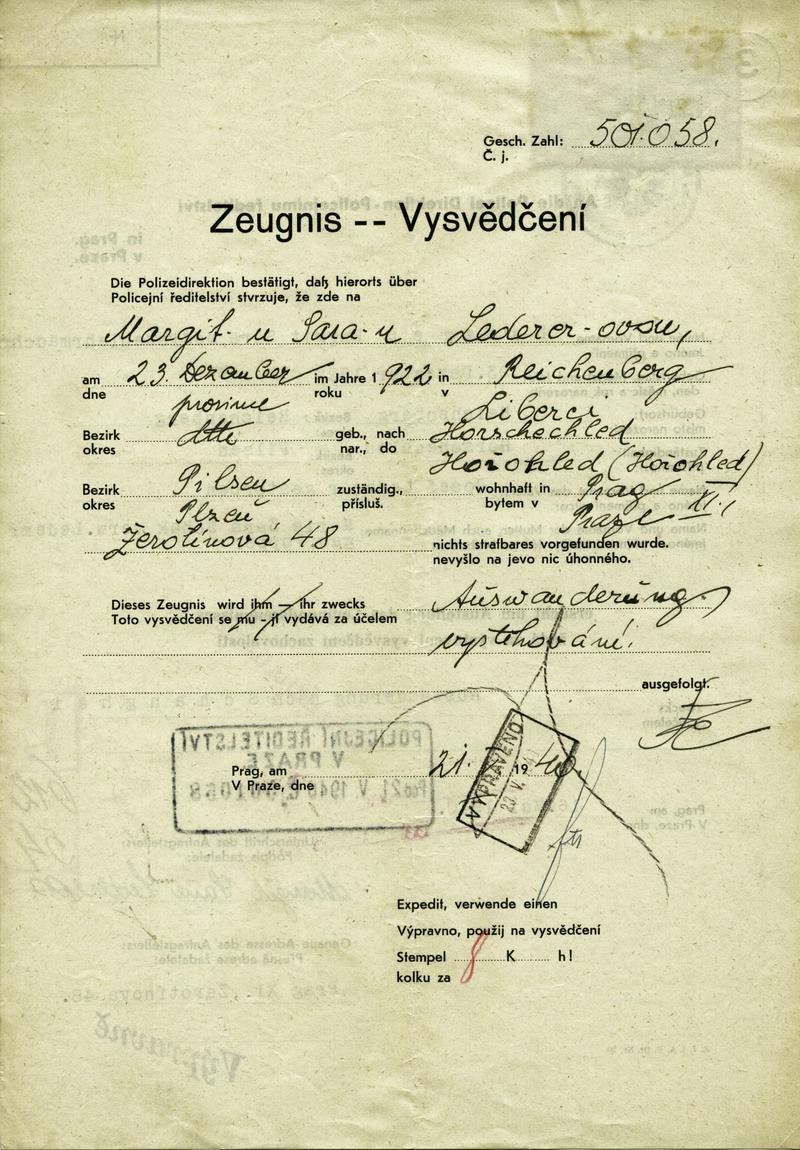 Gesch. Zahl: 501.058.
Č. j.
Zeugnis -- Vysvědčení
Die Polizeidirektion bestätigt, daß hierorts über
Policejní ředitelství stvrzuje, že zde na
Margit-u Sara-u Lederer-ovou,
am 23. Dezember im Jahre 1922 in Reichenberg
dne prosince roku v Liberci
Bezirk dtto geb., nach Horschechled
okres nar., do Hořohled (Hořohled)
Bezirk Pilsen zuständig., wohnhaft in Prag
okres Plzeň přísluš. bytem v Praze XI.,
Žerotínová 48 nichts strafbares vorgefunden wurde.
nevyšlo na jevo nic úhonného.
Dieses Zeugnis wird ihm — ihr zwecks Auswanderung
Toto vysvědčení se mu - jí vydává za účelem vystěhování.
ausgefolgt.
POLICEJNÍ ŘEDITELSTVÍ
V PRAZE
Prag, am 21. 1940
V Praze, dne
VYPRAVENO
Expedit, verwende einen
Výpravno, použij na vysvědčení
Stempel 8 K h!
kolku za